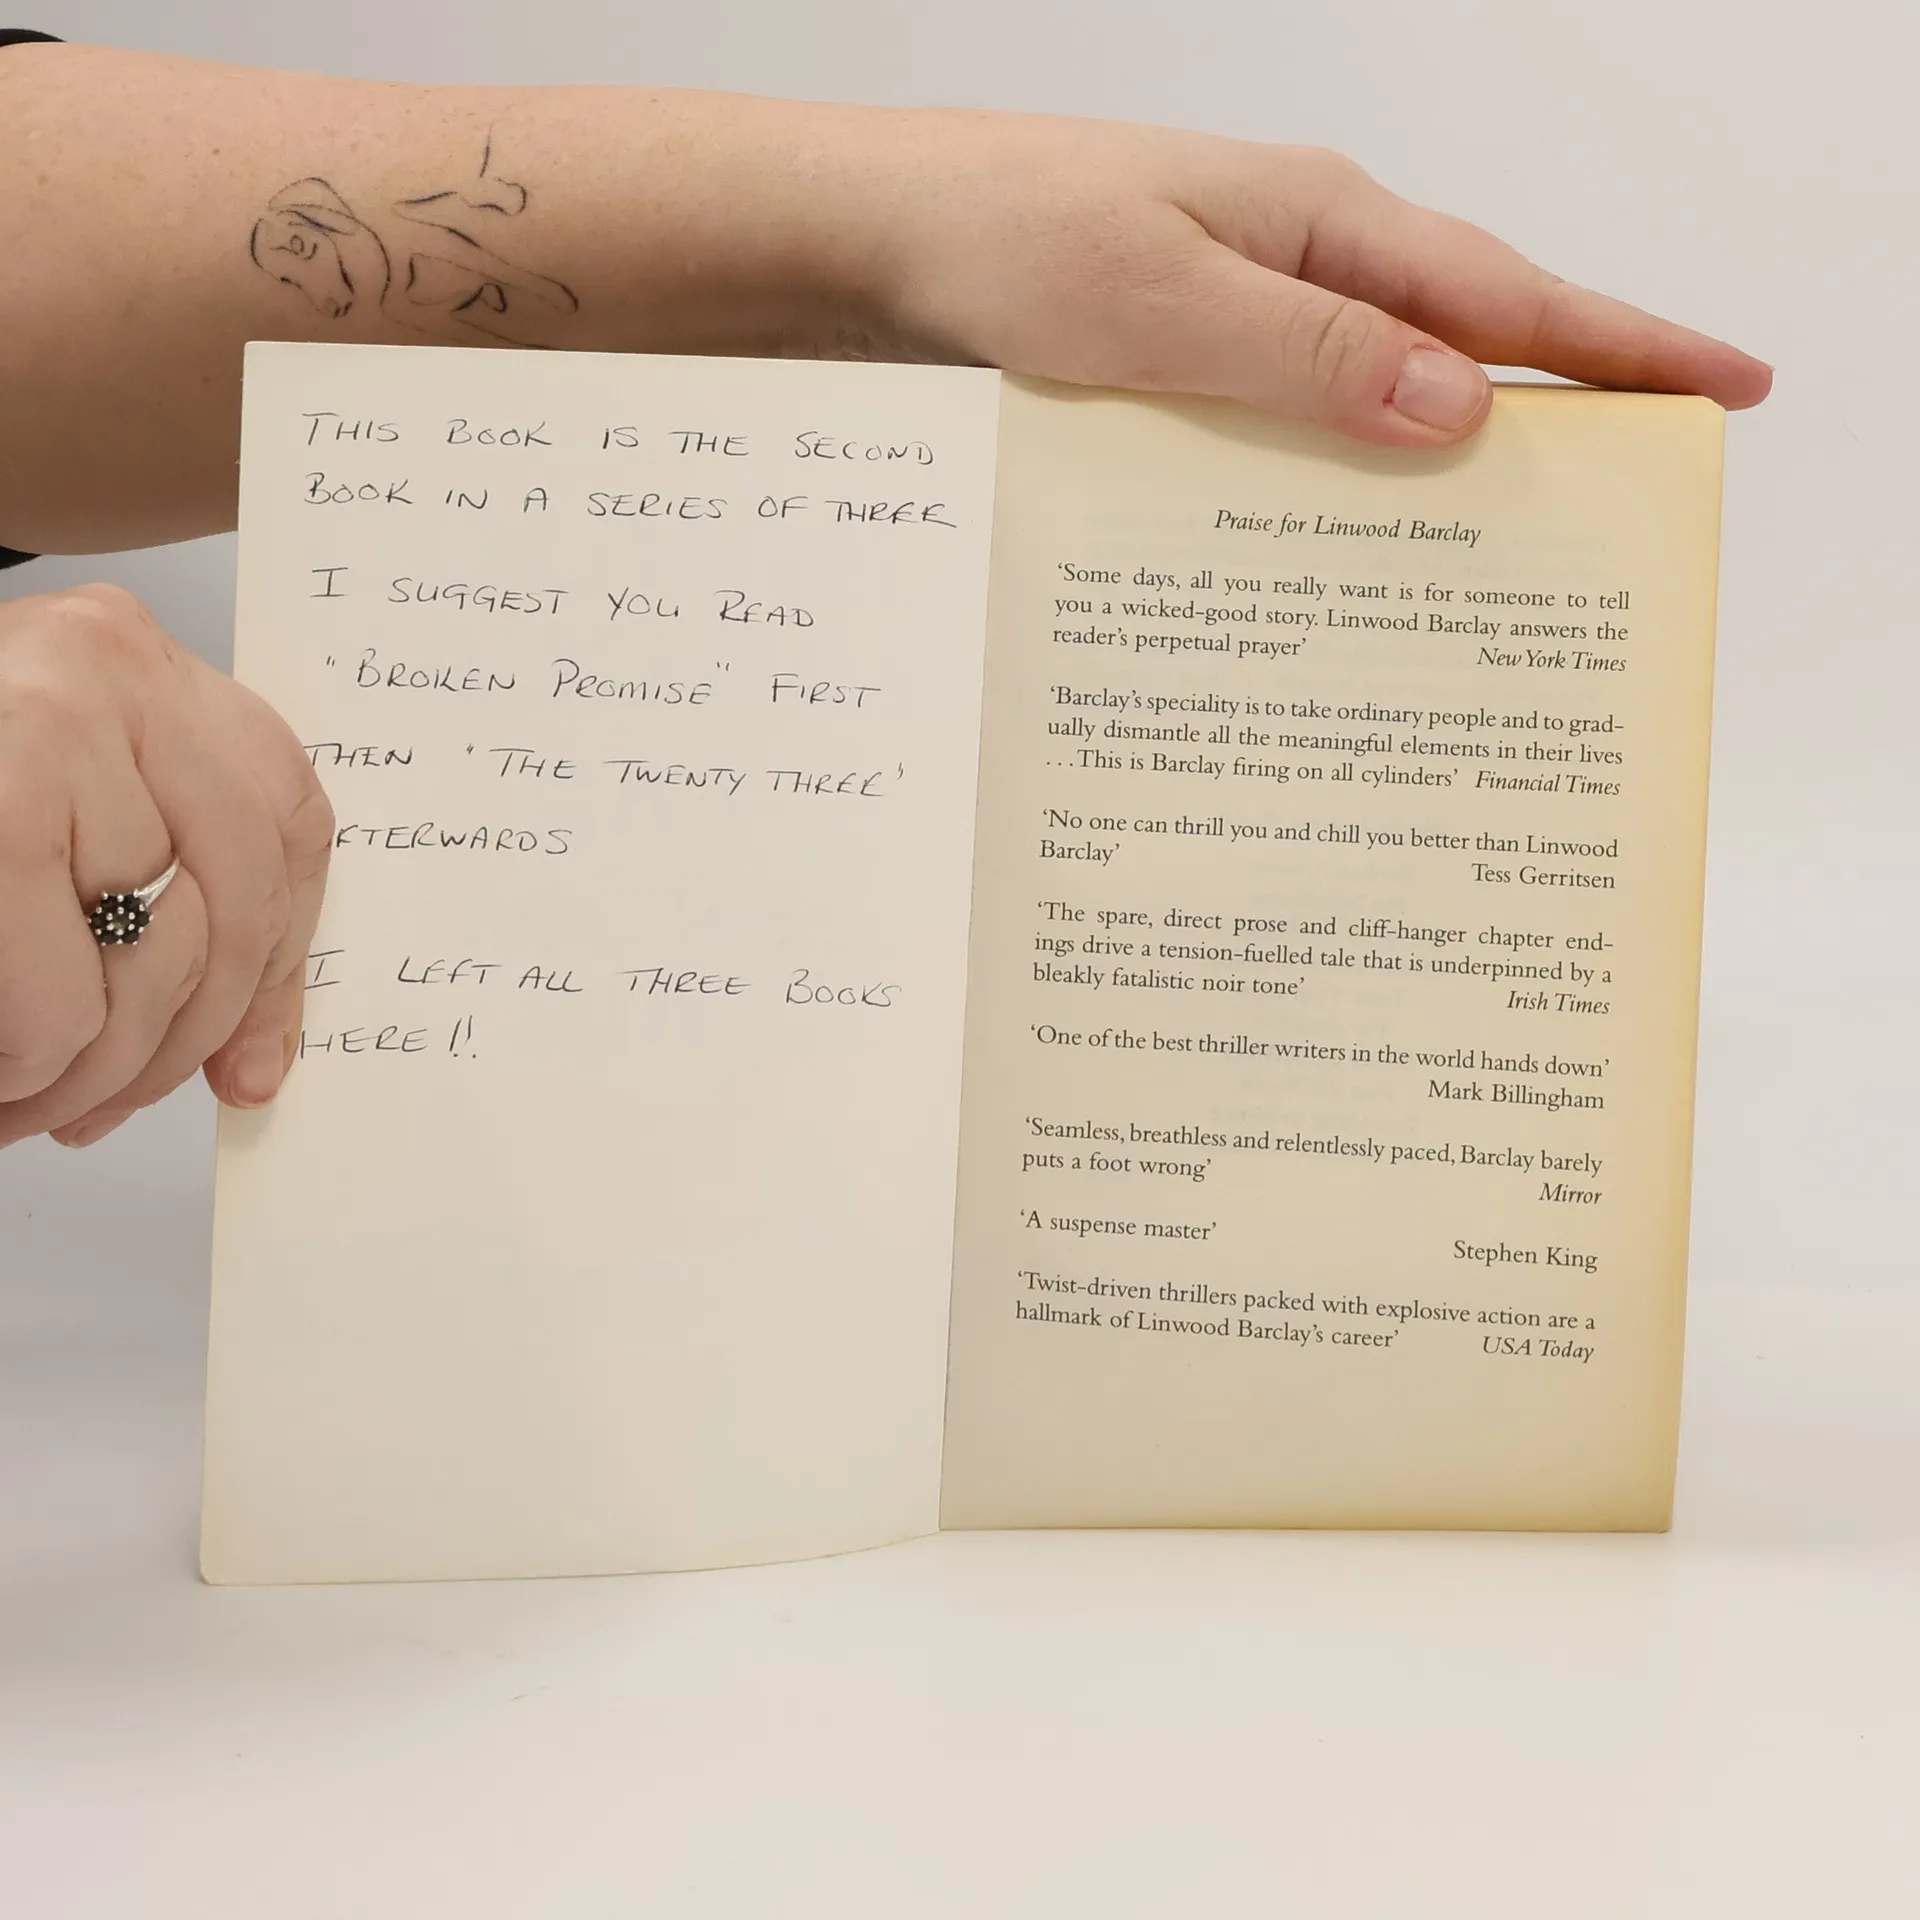 THIS BOOK IS THE SECOND
BOOK IN A SERIES OF THREE
I SUGGEST YOU READ
"BROKEN PROMISE" FIRST
THEN "THE TWENTY THREE"
AFTERWARDS
I LEFT ALL THREE BOOKS
HERE !!
Praise for Linwood Barclay
‘Some days, all you really want is for someone to tell
you a wicked-good story. Linwood Barclay answers the
reader’s perpetual prayer’ New York Times
‘Barclay’s speciality is to take ordinary people and to grad-
ually dismantle all the meaningful elements in their lives
...This is Barclay firing on all cylinders’ Financial Times
‘No one can thrill you and chill you better than Linwood
Barclay’ Tess Gerritsen
‘The spare, direct prose and cliff-hanger chapter end-
ings drive a tension-fuelled tale that is underpinned by a
bleakly fatalistic noir tone’ Irish Times
‘One of the best thriller writers in the world hands down’
Mark Billingham
‘Seamless, breathless and relentlessly paced, Barclay barely
puts a foot wrong’ Mirror
‘A suspense master’ Stephen King
‘Twist-driven thrillers packed with explosive action are a
hallmark of Linwood Barclay’s career’ USA Today